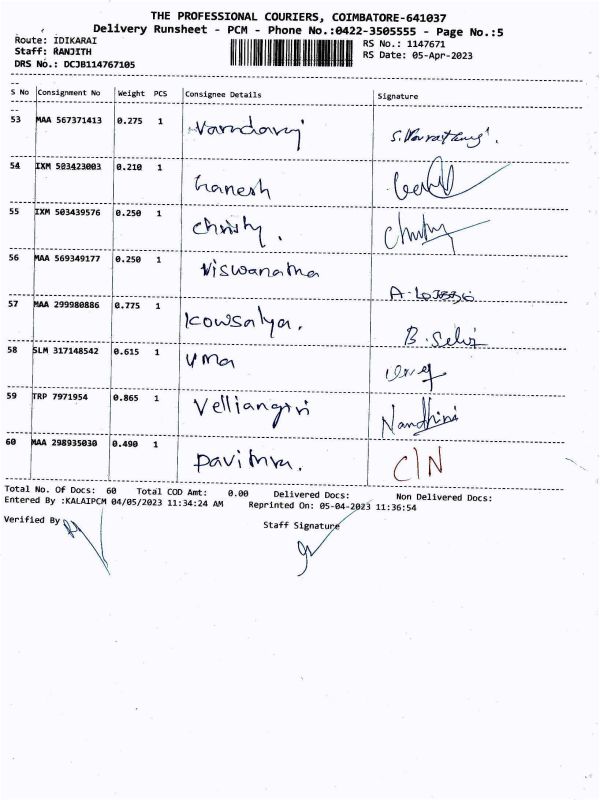 THE PROFESSIONAL COURIERS, COIMBATORE-641037
Delivery Runsheet - PCM - Phone No.:0422-3505555 - Page No.:5
Route: IDIKARAI
RS No.: 1147671
Staff: RANJITH
RS Date: 05-Apr-2023
DRS No.: DCJB114767105
S No Consignment No Weight PCS Consignee Details Signature
53 MAA 567371413 0.275 1
54 IXM 503423003 0.210 1 Ganesh
55 IXM 503439576 0.250 1 Christy. Christy
56 MAA 569349177 0.250 1 Viswanatha
57 MAA 299980886 0.775 1 Kowsalya. B. Selvi
58 SLM 317148542 0.615 1 Uma
59 TRP 7971954 0.865 1 Velliangiri Nandhini
60 MAA 298935030 0.490 1 Pavithra. C/N
Total No. Of Docs: 60 Total COD Amt: 0.00 Delivered Docs: Non Delivered Docs:
Entered By :KALAIPCM 04/05/2023 11:34:24 AM Reprinted On: 05-04-2023 11:36:54
Verified By Staff Signature